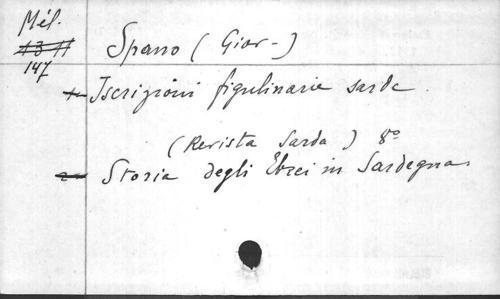 Mél.
147
Spano (Gior-)
1- Iscrizioni figulinarie sarde.
(Revista Sarda) 8º
2- Storia degli Ebrei in Sardegna